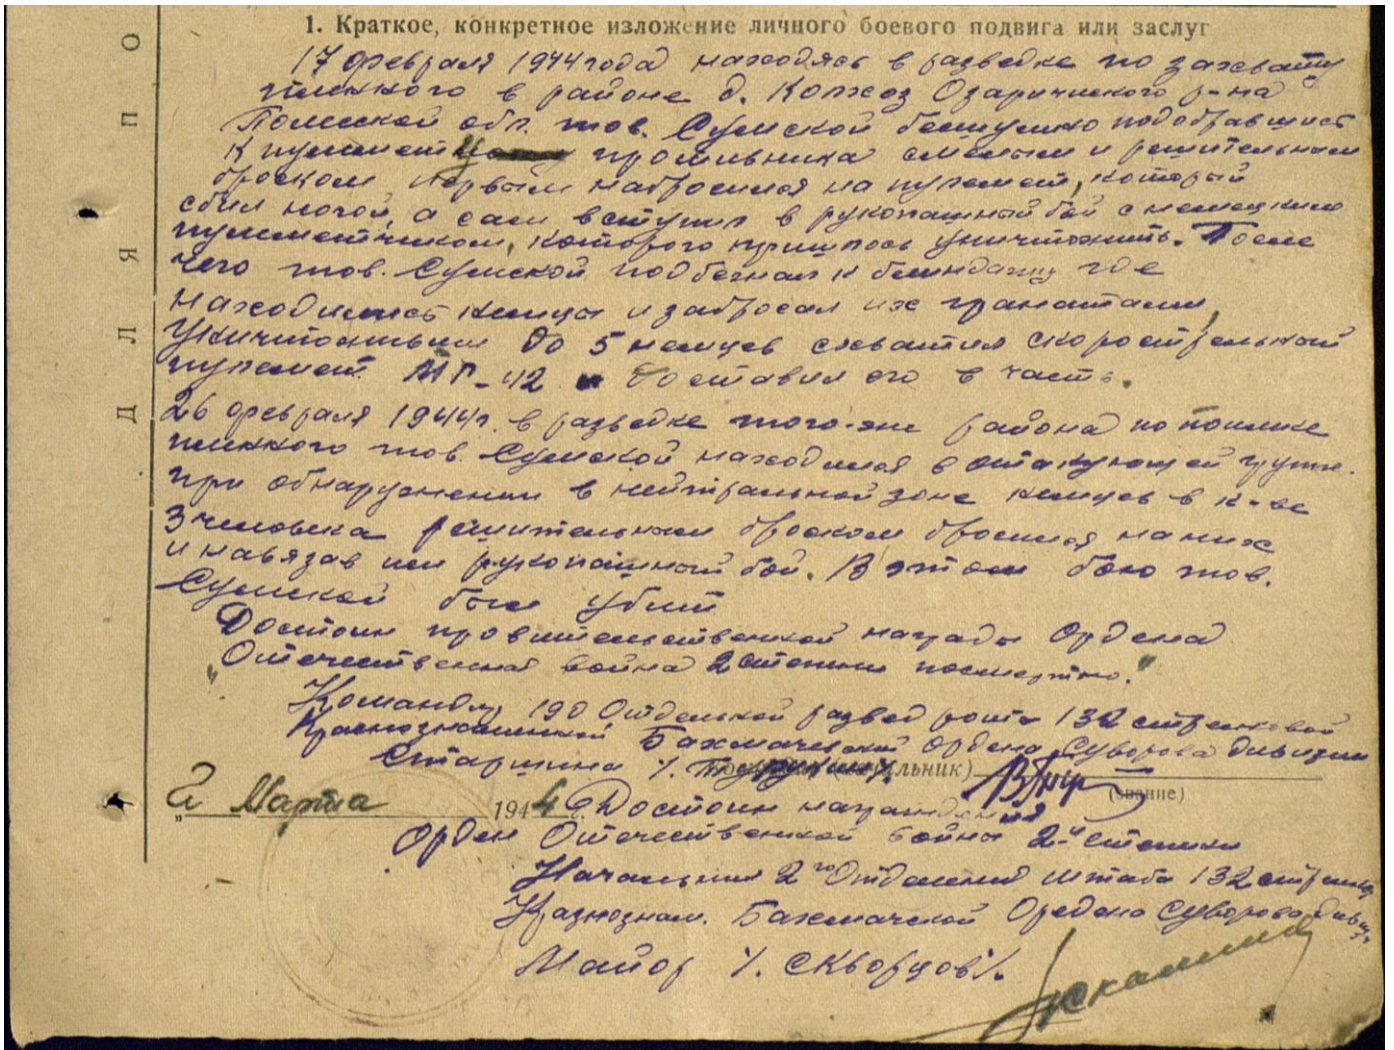 1. Краткое, конкретное изложение личного боевого подвига или заслуг
17 февраля 1944 года находясь в разведке по захвату
пленного в районе д. Колхоз Озаричиского р-на
Полесской обл. тов. Сумской бесшумно подобравшись
к пулемету противника смелым и решительным
броском первым набросился на пулемет, который
сбил ногой, а сам вступил в рукопашный бой с немецким
пулеметчиком, которого пришлось уничтожить. После
чего тов. Сумской подбежал к блиндажу где
находились немцы и забросал их гранатами,
уничтожившим до 5 немцев схватил скорострельный
пулемет МГ-42 и доставил его в часть.
26 февраля 1944 г. в разведке того-же района по поимке
пленного тов. Сумской находился в отакующей групе.
при обнаружении в нейтральной зоне немцев в к-ве
3 человека решительным броском бросился на них
и навязав им рукопашный бой. В этом бою тов.
Сумской был убит
Достоин правительственной награды Ордена
"Отечественная война 2 степени посмертно."
Командир 190 Отдельной развед роты 132 стрелковой
Краснознаменной Бахмачевской ордена Суворова дивизии
Старшина
(звание)
2 Марта 1944 г. Достоин награждения
Орден Отечественной войны 2-й степени
Начальник 2го Отделения штаба 132 стрелк
Краснознам. Бахмачской Ордена Суворова дивиз.
Майор /. Скворцов /.
Д Л Я П О